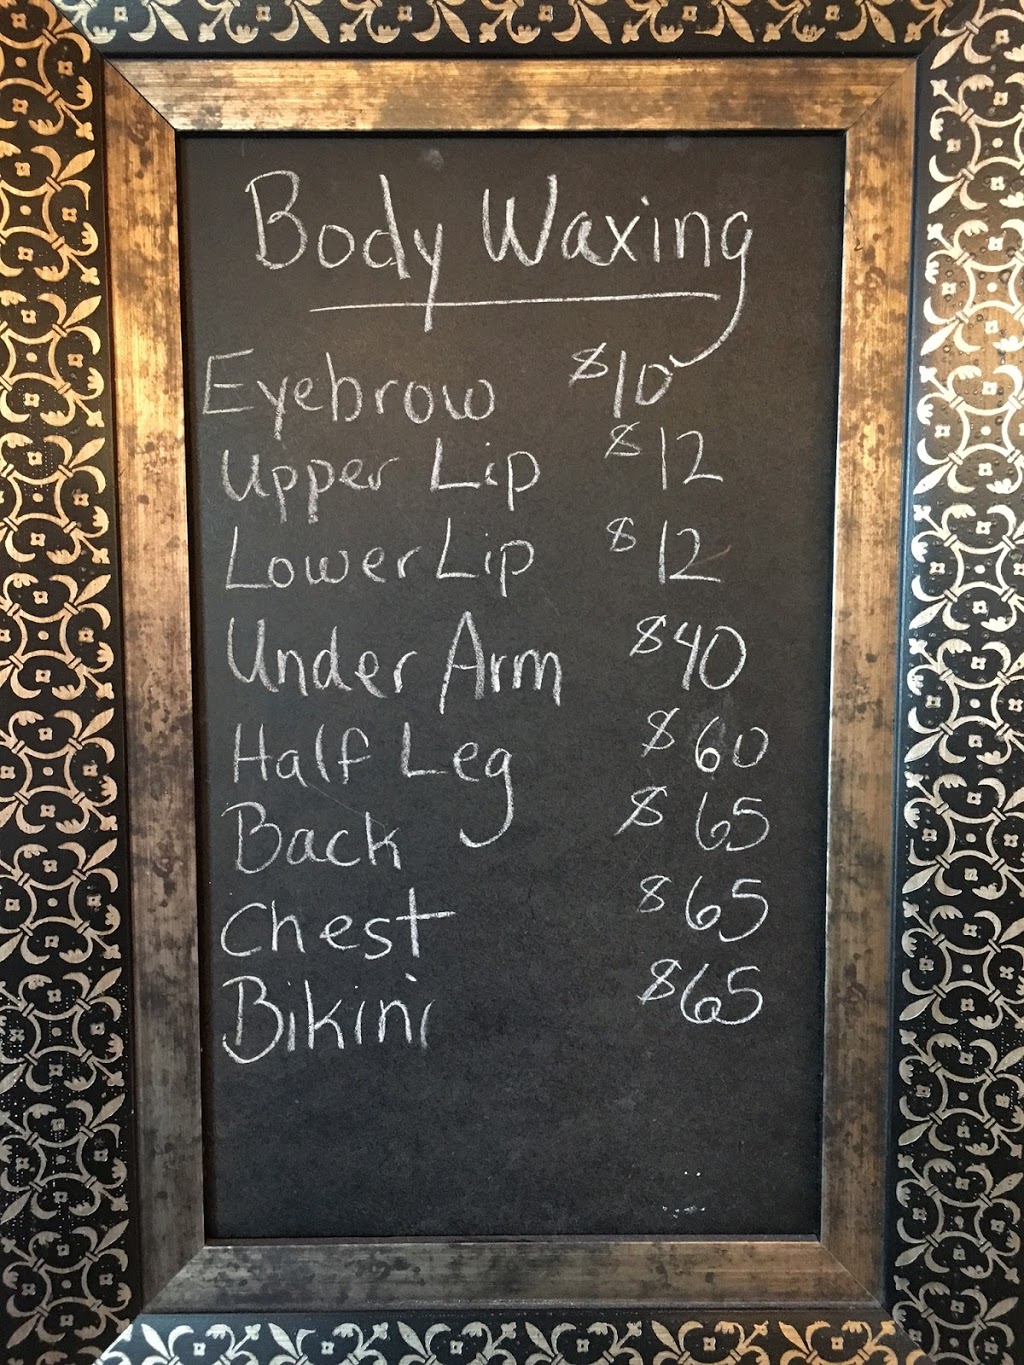 Body Waxing
Eyebrow $10
Upper Lip $12
Lower Lip $12
Under Arm $40
Half Leg $60
Back $65
Chest $65
Bikini $65